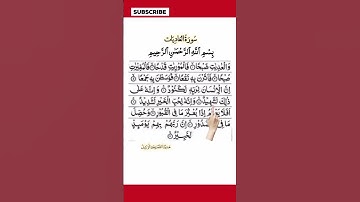 SUBSCRIBE
سُورَةُ العَادِيَات
بِسْمِ اللهِ الرَّحْمٰنِ الرَّحِيْمِ
وَالْعٰدِيٰتِ ضَبْحًا ۝ فَالْمُوْرِيٰتِ قَدْحًا ۝ فَالْمُغِيْرٰتِ
صُبْحًا ۝ فَاَثَرْنَ بِهٖ نَقْعًا ۝ فَوَسَطْنَ بِهٖ جَمْعًا ۝
اِنَّ الْاِنْسَانَ لِرَبِّهٖ لَكَنُوْدٌ ۝ وَاِنَّهٗ عَلٰى
ذٰلِكَ لَشَهِيْدٌ ۝ وَاِنَّهٗ لِحُبِّ الْخَيْرِ لَشَدِيْدٌ ۝
اَفَلَا اِذَا بُعْثِرَ مَا فِى الْقُبُوْرِ ۝ وَحُصِّلَ
مَا فِى ۝ اِنَّ رَبَّهُمْ بِهِمْ يَوْمَئِذٍ
لَّخَبِيْرٌ ۝